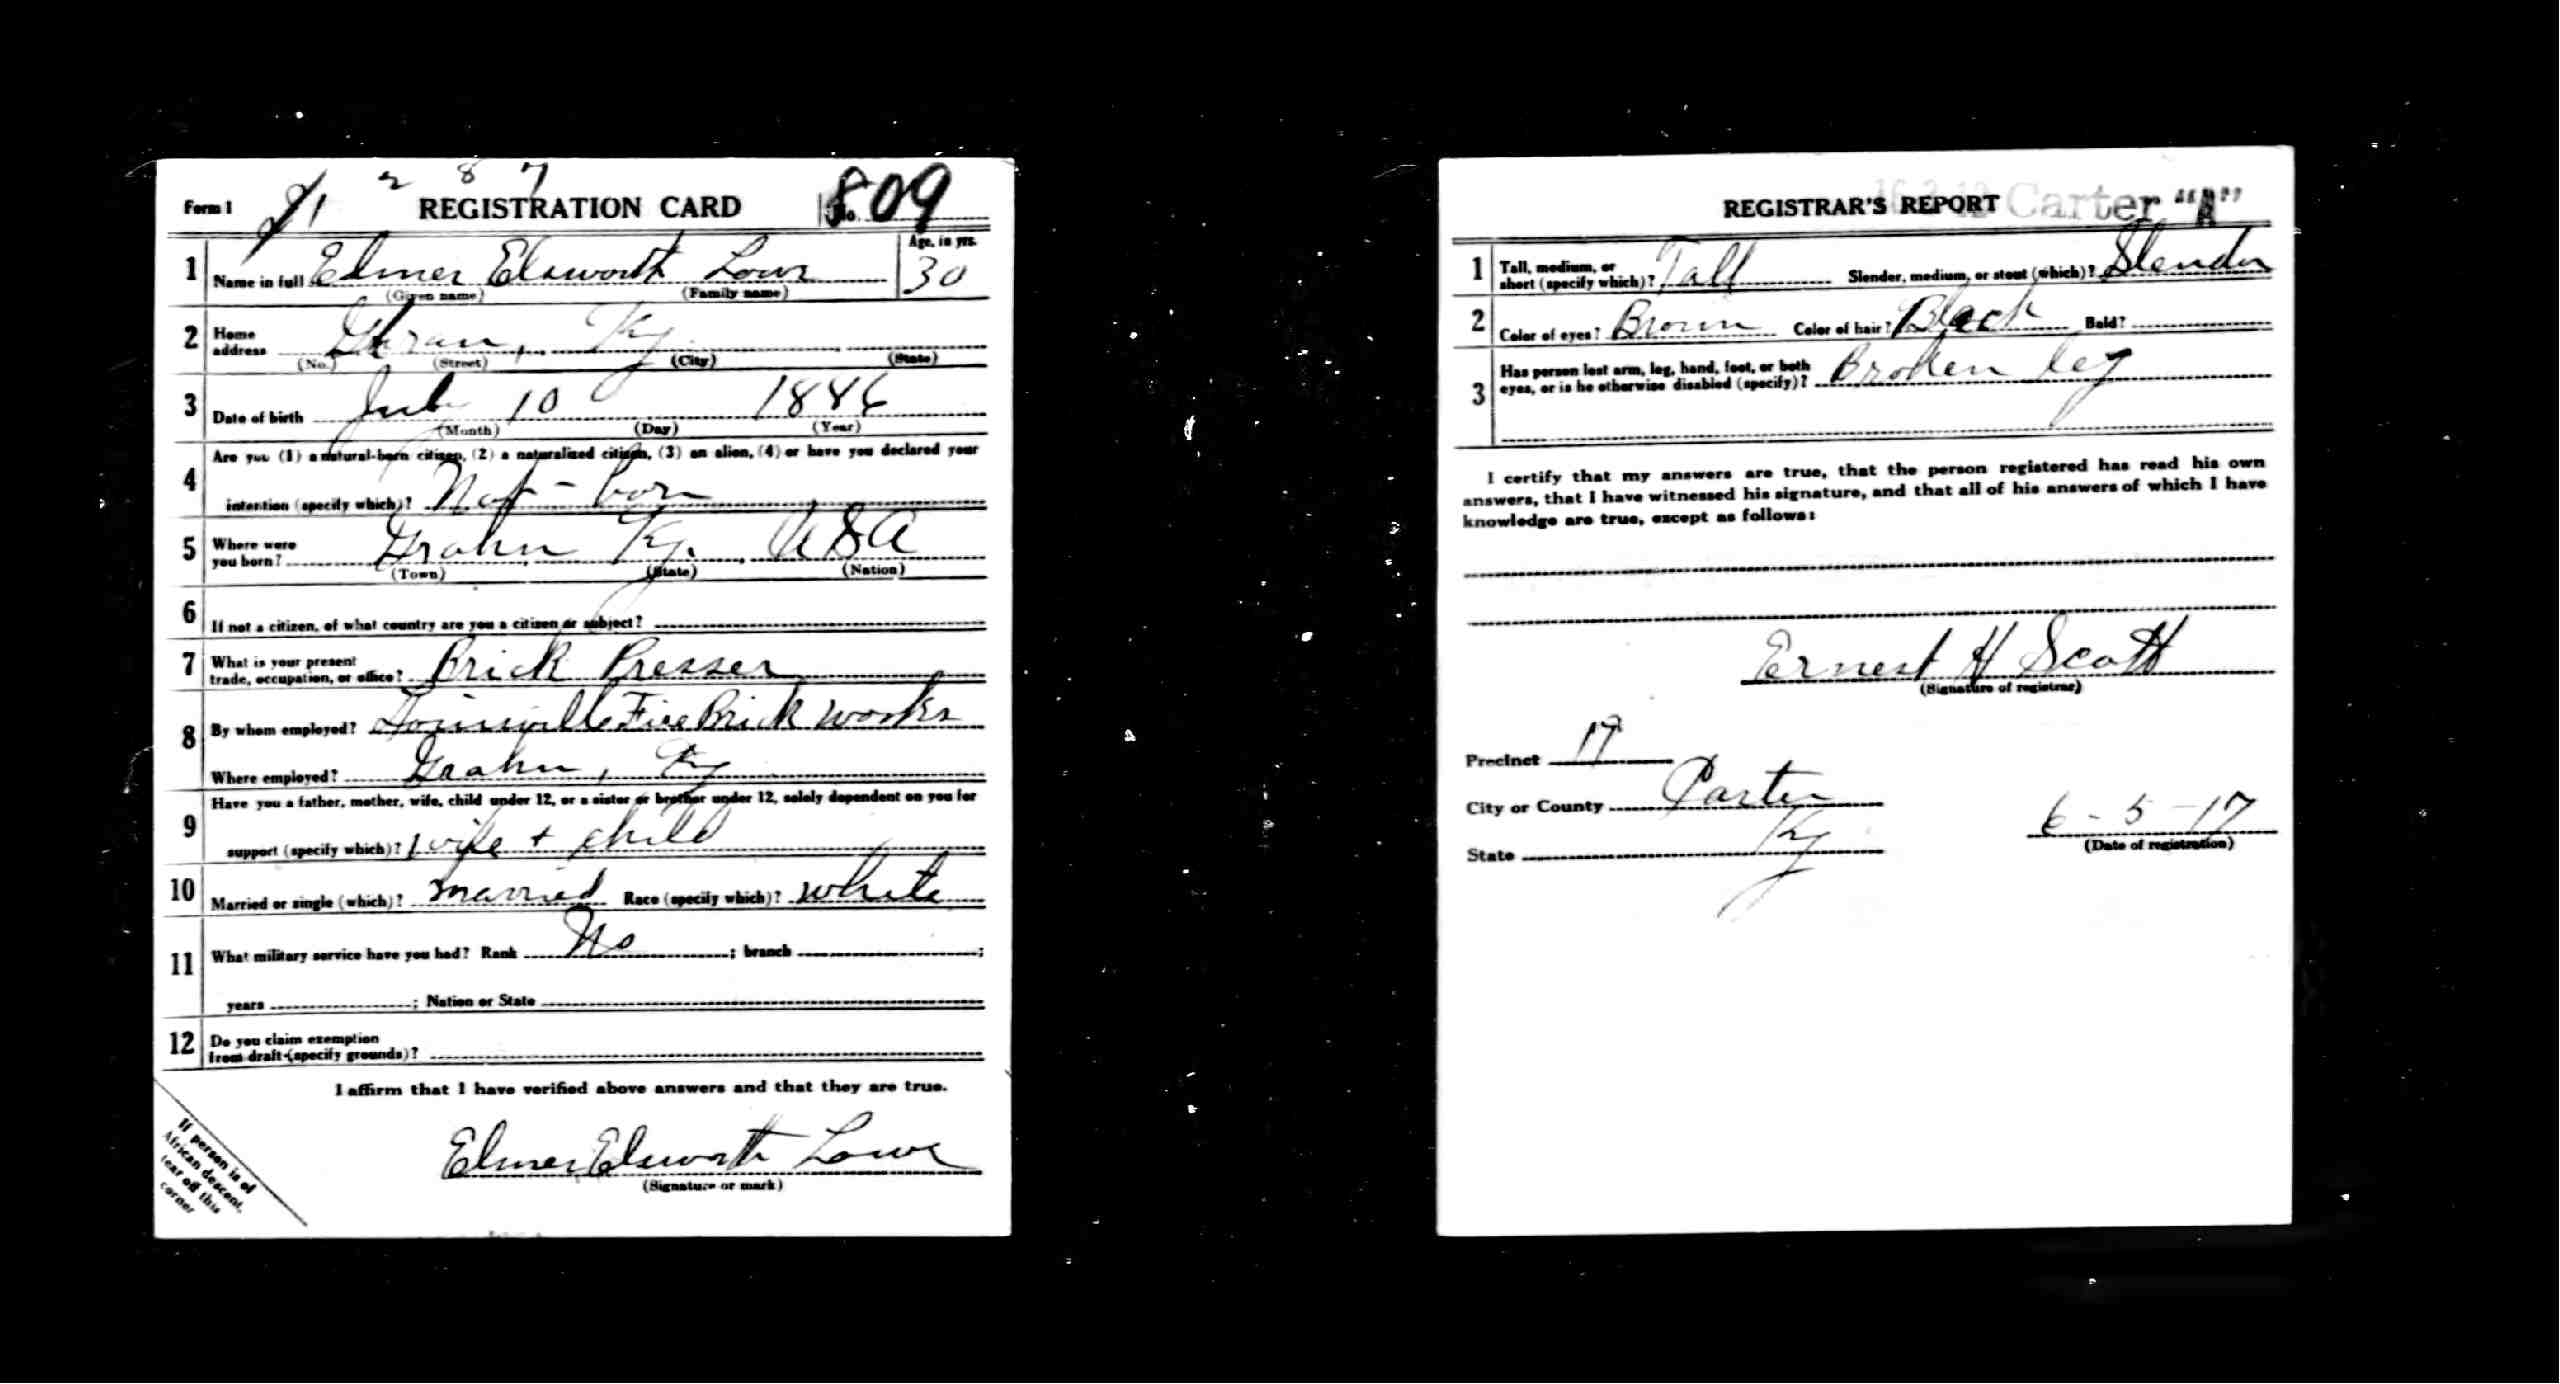 2 8 7
Form 1 REGISTRATION CARD No. 809
1 Name in full Elmer Elsworth Lowe Age, in yrs. 30
(Given name) (Family name)
2 Home address Ky.
(No.) (Street) (City) (State)
3 Date of birth July 10 1886
(Month) (Day) (Year)
4 Are you (1) a natural-born citizen, (2) a naturalized citizen, (3) an alien, (4) or have you declared your
intention (specify which)? Nat-born
5 Where were you born? Grahn Ky. USA
(Town) (State) (Nation)
6 If not a citizen, of what country are you a citizen or subject?
7 What is your present trade, occupation, or office? Brick Presser
8 By whom employed? Louisville Fire Brick Works
Where employed? Grahn, Ky
9 Have you a father, mother, wife, child under 12, or a sister or brother under 12, solely dependent on you for
support (specify which)? wife + child
10 Married or single (which)? married Race (specify which)? white
11 What military service have you had? Rank No ; branch ;
years ; Nation or State
12 Do you claim exemption from draft (specify grounds)?
I affirm that I have verified above answers and that they are true.
Elmer Elsworth Lowe
(Signature or mark)
If person is of
African descent,
tear off this
corner
REGISTRAR'S REPORT Carter "A"
1 Tall, medium, or short (specify which)? Tall Slender, medium, or stout (which)? Slender
2 Color of eyes? Brown Color of hair? Black Bald?
3 Has person lost arm, leg, hand, foot, or both
eyes, or is he otherwise disabled (specify)? Broken leg
I certify that my answers are true, that the person registered has read his own
answers, that I have witnessed his signature, and that all of his answers of which I have
knowledge are true, except as follows:
Ernest H Scott
(Signature of registrar)
Precinct 17
City or County Carter
State Ky
6-5-17
(Date of registration)